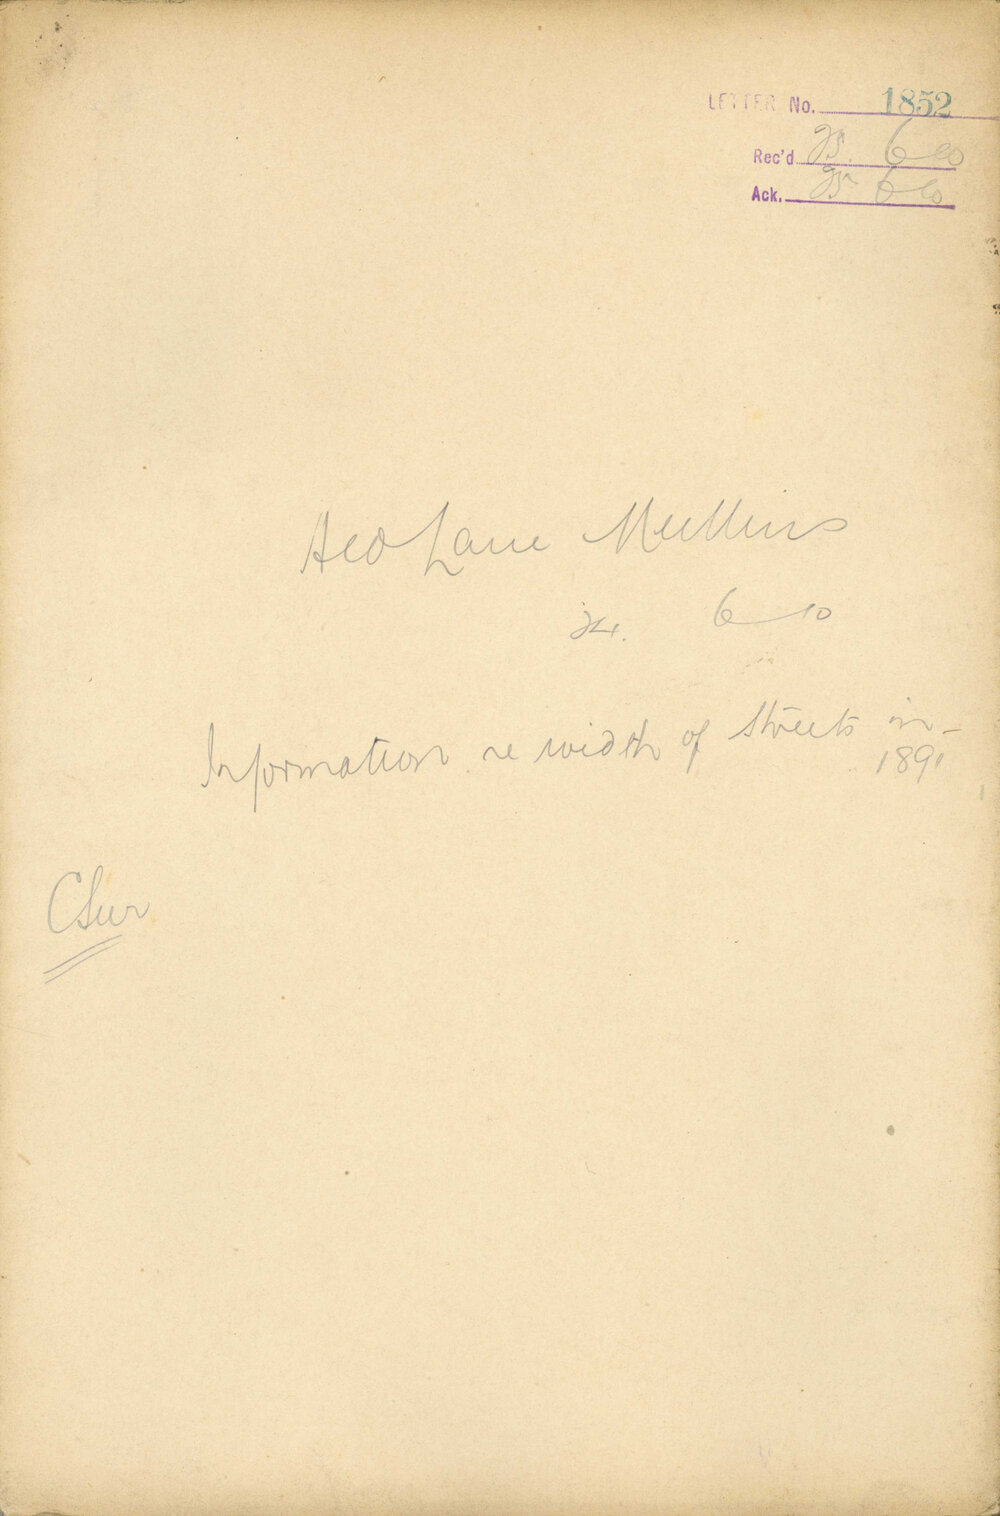 LETTER No. 1852
Rec'd 25. 6 10
Ack. 25 6 10
Geo Lane Mullins
24. 6 10
Information re width of Streets in
1891
CSur